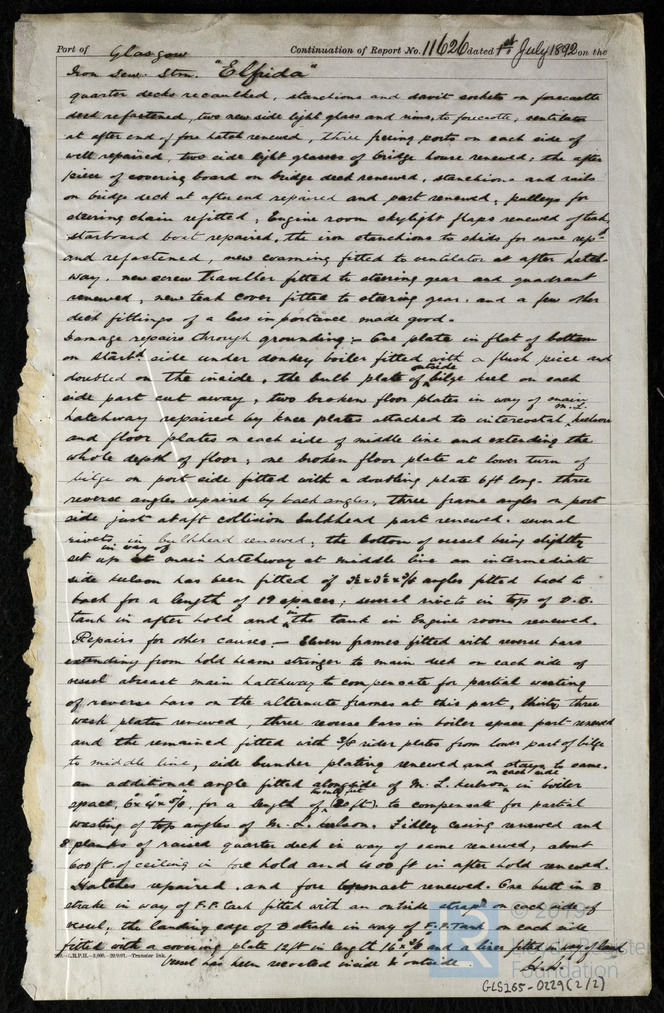 Port of Glasgow Continuation of Report No. 11626 dated 1st July 1892 on the
Iron Scw. Stm. "Elfrida"
quarter decks recaulked, stanchions and davit sockets on forecastle
deck refastened, two new side light glass and rims, to forecastle, ventilator
at after end of fore hatch renewed, three freeing ports on each side of
well repaired, two side light glasses of bridge house renewed, the after
piece of covering board on bridge deck renewed, stanchions and rails
on bridge deck at after end repaired and part renewed, pulleys for
steering chain refitted, Engine room skylight flaps renewed of teak,
starboard boat repaired, the iron stanchions to skids for same repd
and refastened, new coaming fitted to ventilator at after hatch
way, new screw Traveller fitted to steering gear and quadrant
renewed, new teak cover fitted to steering gear, and a few other
deck fittings of a less importance made good.
Damage repairs through grounding:- One plate in flat of bottom
on Starbd side under donkey boiler fitted with a flush piece and
doubled on the inside, the bulb plate of outside bilge keel on each
side part cut away, two broken floor plates in way of main
hatchway repaired by knee plates attached to intercostal M.L. keelson
and floor plates on each side of middle line and extending the
whole depth of floor, one broken floor plate at lower turn of
bilge on port side fitted with a doubling plate 6ft long. three
reverse angles repaired by back angles, three frame angles on port
side just abaft collision bulkhead part renewed. several
rivets in bulkhead renewed, the bottom of vessel being slightly
set up in way of main hatchway at middle line an intermediate
side keelson has been fitted of angles fitted back to
back for a length of 19 spaces; several rivets in top of D.B.
tank in after hold and in the tank in Engine room renewed.
Repairs for other causes.- Eleven frames fitted with reverse bars
extending from hold beam stringer to main deck on each side of
vessel abreast main hatchway to compensate for partial wasting
of reverse bars on the alternate frames at this part, thirty three
wash plates renewed, three reverse bars in boiler space part renewed
and the remained fitted with 3/8 rider plates from lower part of bilge
to middle line, side bunker plating renewed and stays to same.
an additional angle fitted alongside of M.L. keelson on each side in boiler
space, for a length of twenty feet (20 ft), to compensate for partial
wasting of top angles of M.L. keelson. Fidley casing renewed and
8 planks of raised quarter deck in way of same renewed, about
600 ft. of ceiling in fore hold and 400 ft in after hold renewed.
Hatches repaired, and fore topmast renewed. One butt in B
strake in way of F.P. tank fitted with an outside strap on each side of
vessel; the landing edge of B strake in way of F.P. Tank on each side
fitted with a covering plate 12ft in length and a liner fitted in way of
Vessel has been recoated inside & outside.
-L.R.P.H.- -Transfer Ink.
© 2019
LR
Lloyd's Register
Foundation
GLS265-0229(2/2)